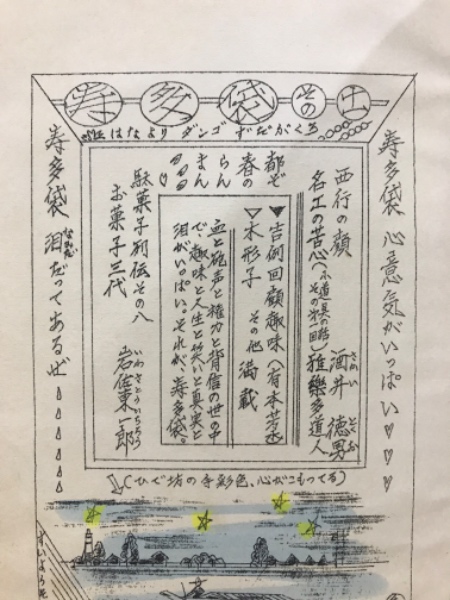 寿多袋その士
はなより ダンゴ ずだぶくろ
寿多袋 心意気がいっぱい♡♡♡
西行の顔 酒井徳男
さかい とくお
名工の苦心 雅樂多道人
▼吉例回顧趣味(有木芳水)
▽木形子 その他 満載
血と砲声と権力と背信の世の中
で、趣味と人生と笑いと真実と
泪がいっぱい。それが、寿多袋。
都ぞ
春の
らん
まん
駄菓子列伝その八
お菓子三代 岩佐東一郎
いわさとういちろう
寿多袋 泪だってあるぜ
なみだ
(ひで坊の手彩色、心がこもってる)